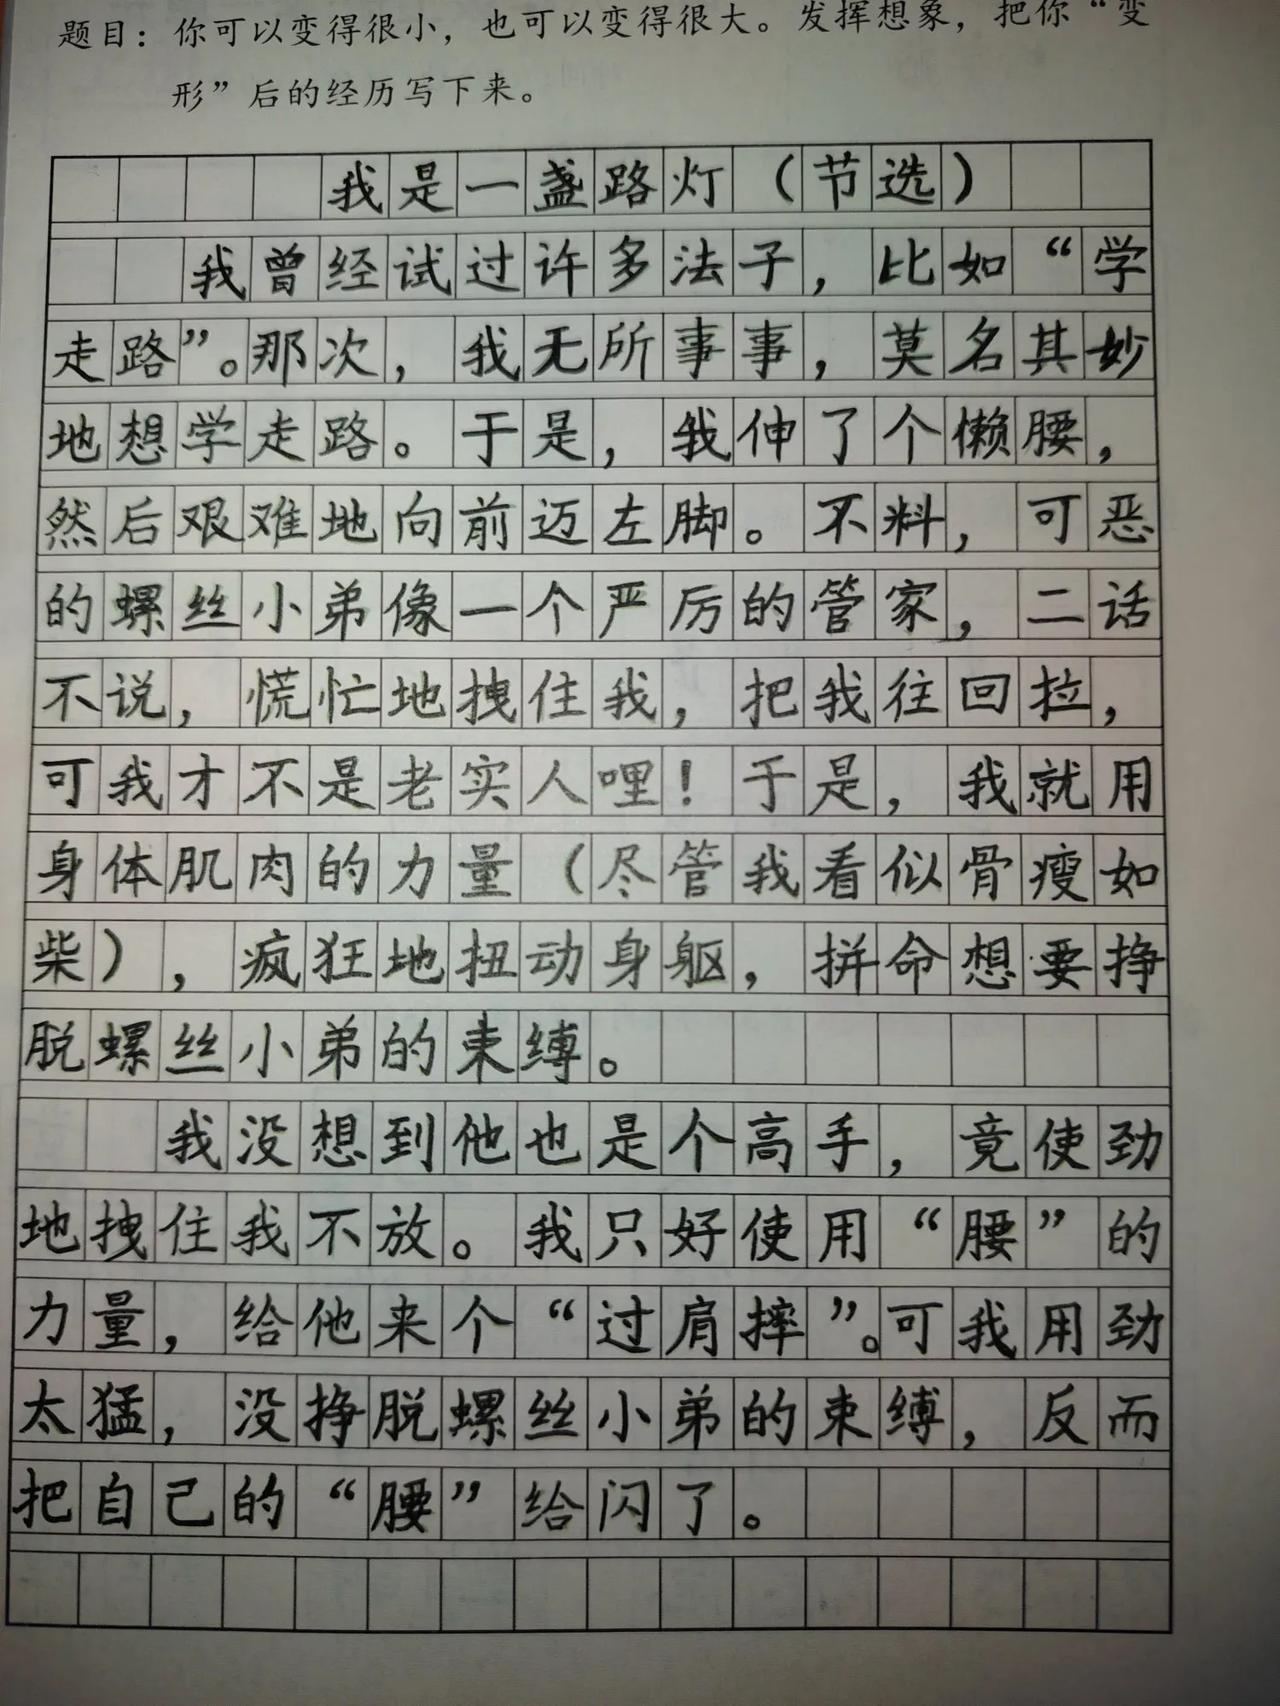 题目：你可以变得很小，也可以变得很大。发挥想象，把你“变
形”后的经历写下来。
我是一盏路灯（节选）
我曾经试过许多法子，比如“学
走路”。那次，我无所事事，莫名其妙
地想学走路。于是，我伸了个懒腰，
然后艰难地向前迈左脚。不料，可恶
的螺丝小弟像一个严厉的管家，二话
不说，慌忙地拽住我，把我往回拉，
可我才不是老实人哩！于是，我就用
身体肌肉的力量（尽管我看似骨瘦如
柴），疯狂地扭动身躯，拼命想要挣
脱螺丝小弟的束缚。
我没想到他也是个高手，竟使劲
地拽住我不放。我只好使用“腰”的
力量，给他来个“过肩摔”。可我用劲
太猛，没挣脱螺丝小弟的束缚，反而
把自己的“腰”给闪了。